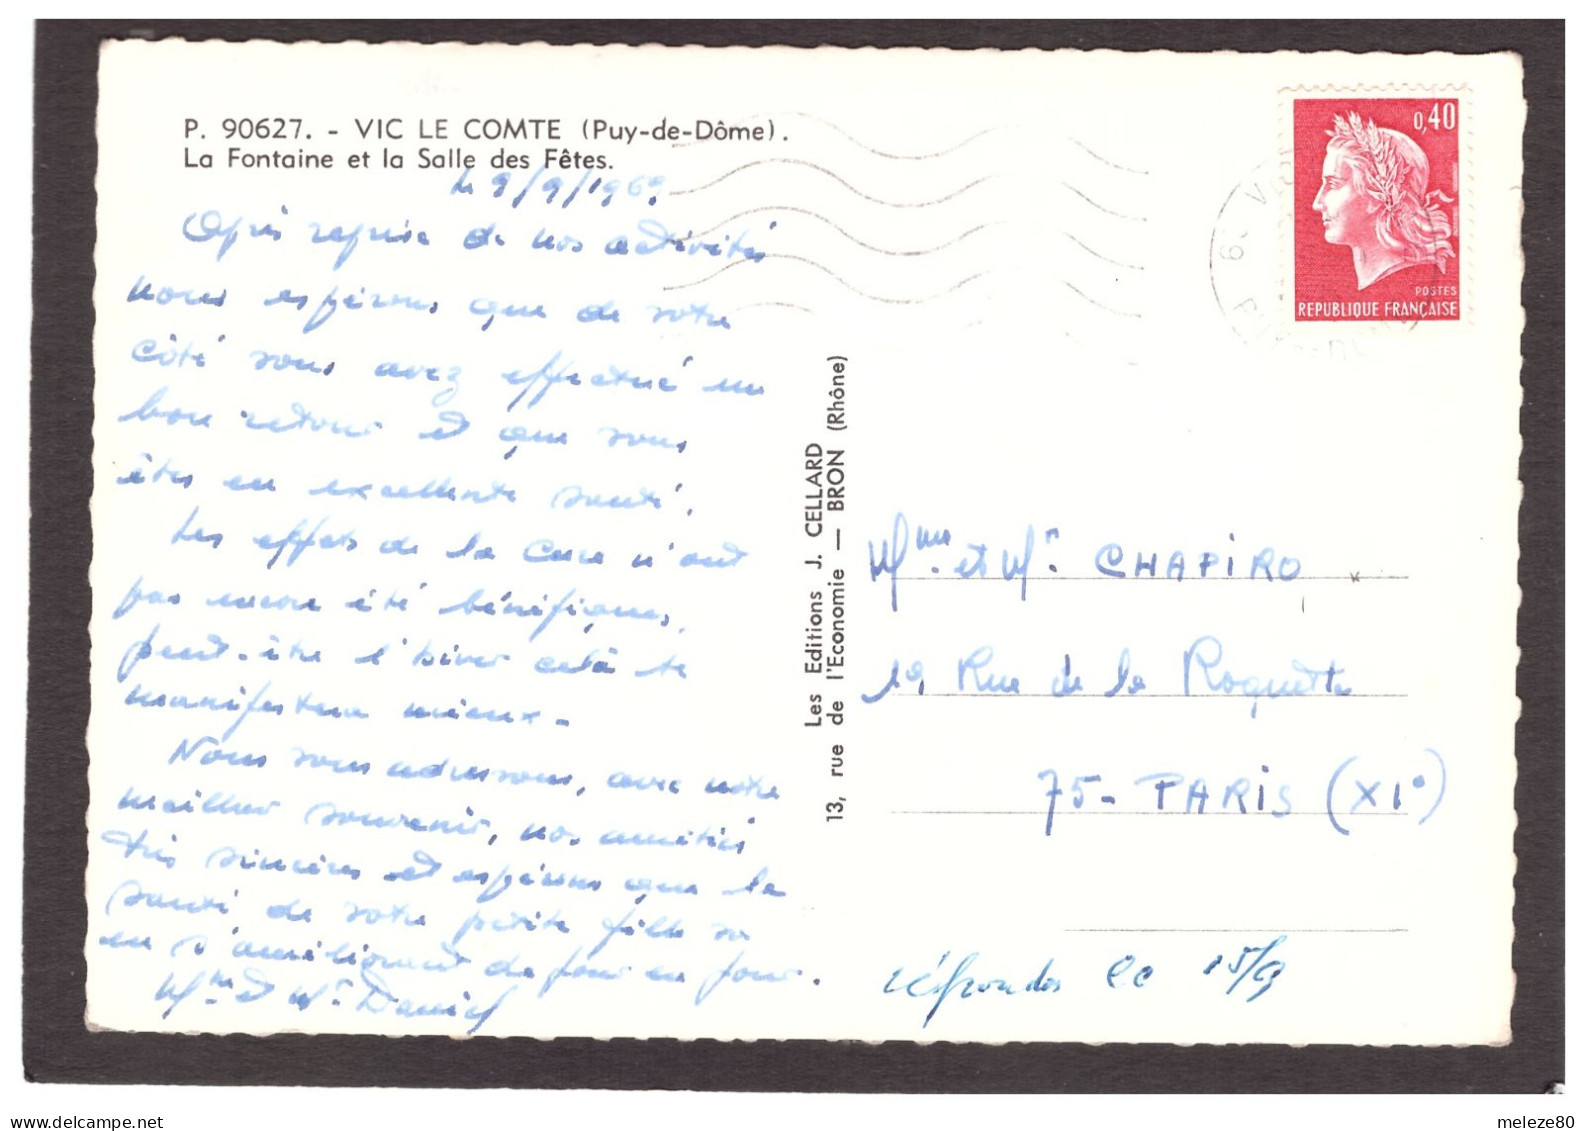 P. 90627. - VIC LE COMTE (Puy-de-Dôme).
La Fontaine et la Salle des Fêtes.
Le 9/9/1969
Après reprise de nos activités
nous espérons que de votre
côté vous avez effectué un
bon retour et que vous
êtes en excellente santé.
Les effets de la Cure n'ont
pas encore été bénéfiques,
peut-être l'hiver celà se
manifestera mieux -
Nous vous adressons, avec notre
meilleur souvenir, nos amitiés
très sincères et espérons que la
santé de votre petite fille va
en s'améliorant de jour en jour.
Mme et Mr Daniel
Les Editions J. CELLARD
13, rue de l'Economie — BRON (Rhône)
0,40
POSTES
REPUBLIQUE FRANÇAISE
Mme. et Mr. CHAPIRO
19, Rue de la Roquette
75 - PARIS (XIe)
répondu le 15/9
delcampe.net
meleze80